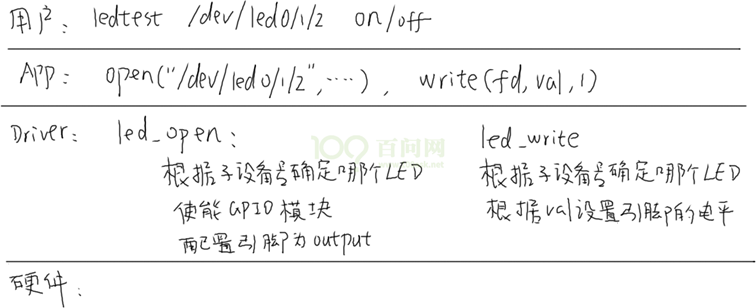 用户: ledtest /dev/led0/1/2 on/off
App: open("/dev/led0/1/2",....), write(fd,val,1)
Driver: led_open: led_write
根据子设备号确定哪个LED 根据子设备号确定哪个LED
使能GPIO模块 根据val设置引脚的电平
配置引脚为output
硬件:
100 百问网